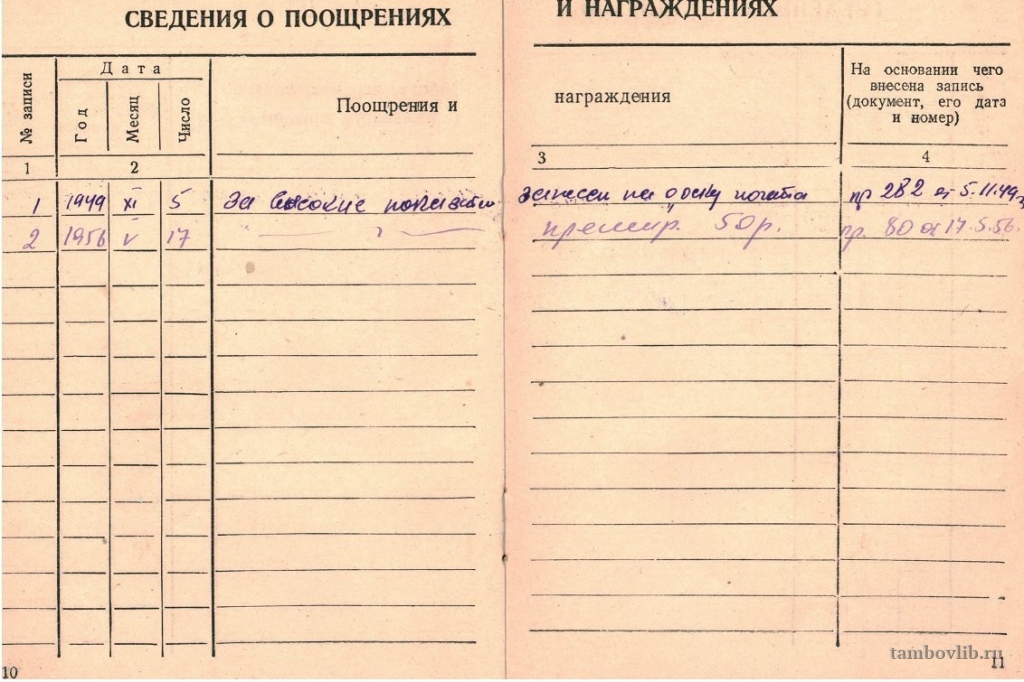 СВЕДЕНИЯ О ПООЩРЕНИЯХ И НАГРАЖДЕНИЯХ
№ записи
Дата
Год
Месяц
Число
Поощрения и награждения
На основании чего
внесена запись
(документ, его дата
и номер)
1 2 3 4
1 1949 XI 5 За высокие показатели занесен на доску почета пр 282 от 5.11.49г
2 1956 V 17 — " — премир. 50р. пр. 80 от 17.5.56.
10
11
tambovlib.ru